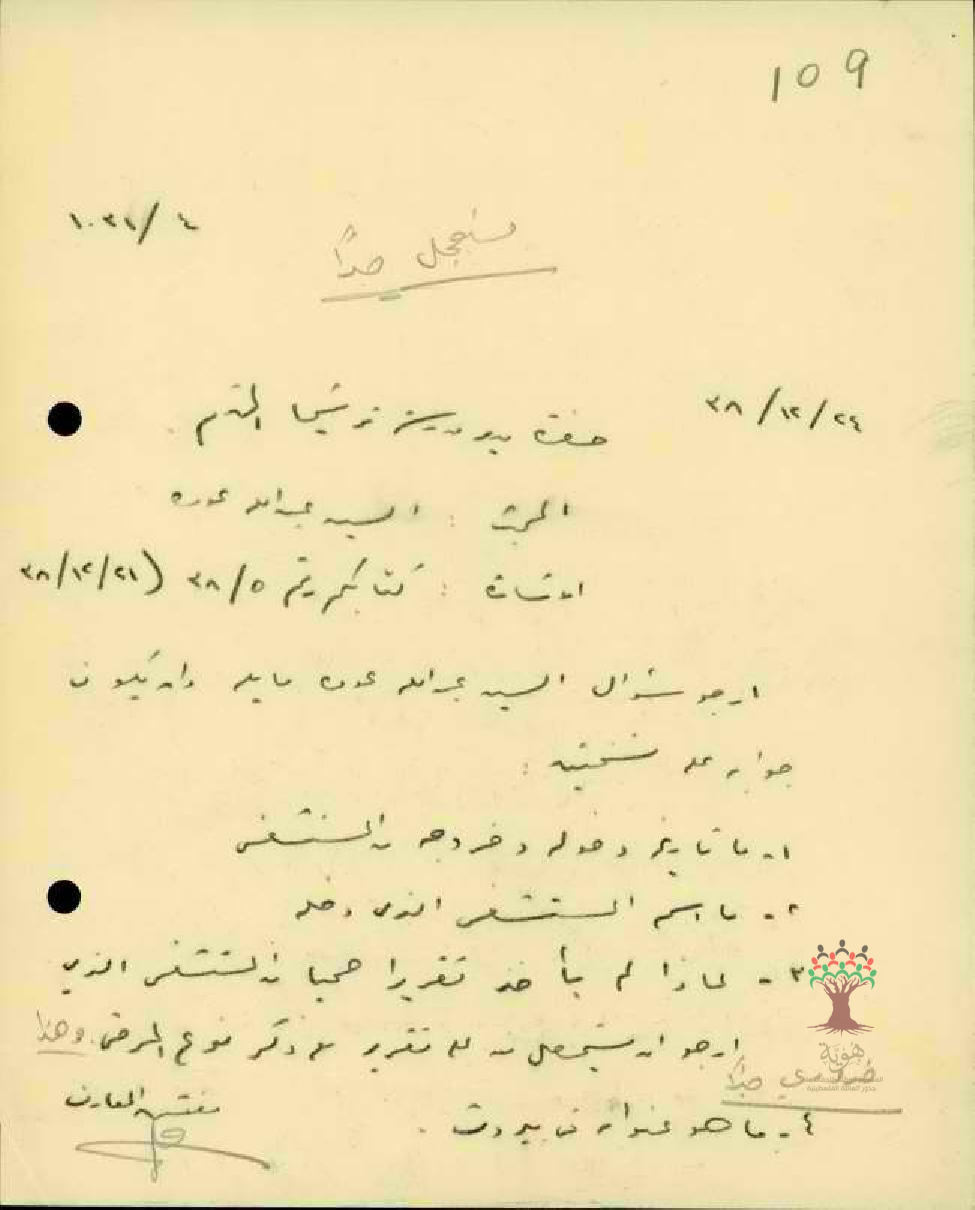 109
١٠٣١/٤
مستعجل جداً
٣٨/١٢/٢٤
حضرة مدير مدرسة ترشيحا المحترم
المبحث : السيد عبدالله عوده
الاشارة : كتابكم رقم ٣٨/٥ (٣٨/١٢/٢١
ارجو سؤال السيد عبدالله عوده ما يلي وان يكون
جوابه على نسختين :
١- ما تاريخ دخوله وخروجه من المستشفى
٢- ما اسم المستشفى الذي دخله
٣- لماذا لم يأخذ تقريرا صحيا من المستشفى الذي
ارجو ان يستحصل منه على تقرير مع ذكر نوع المرض. وهذا
ضروري جداً
٤- ما هو عنوانه في بيروت .
مفتش المعارف
هُويّة